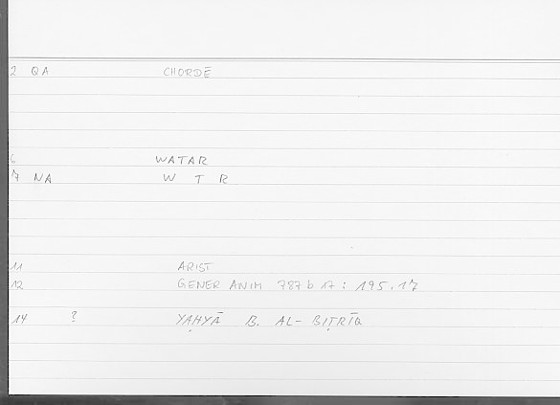 2 QA CHORDĒ
6 WATAR
7 NA W T R
11 ARIST
12 GENER ANIM 787 b 17 : 195.17
14 ? YAḤYĀ B. AL-BIṬRĪQ